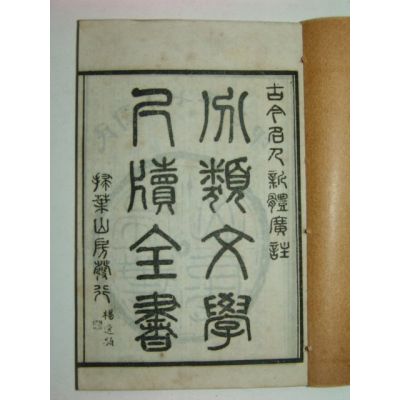 古今名人新體廣註
分類文學
尺牘全書
掃葉山房發行